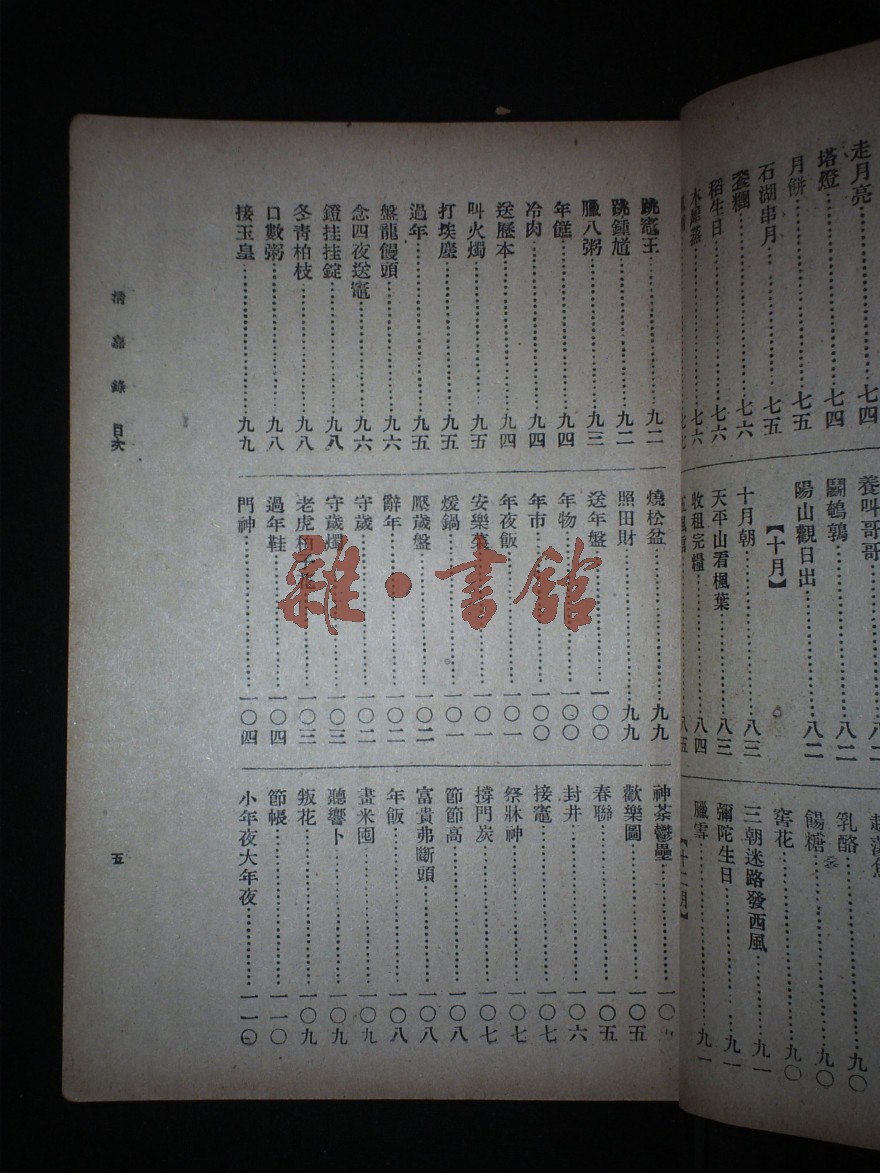 走月亮……七四
塔燈……七四
月餅……七五
石湖串月……七五
糍糰……七六
稻生日……七六
木樨蒸……七六
七七
養叫哥哥……八二
鬭鵪鶉……八二
陽山觀日出……八二
【十月】
十月朝……八三
天平山看楓葉……八三
收租完糧……八四
五風信……八五
乳酪……九〇
餳糖……九〇
窖花……九〇
三朝迷路發西風……九一
彌陀生日……九一
臘雪……九一
【十二月】
跳竈王……九二
跳鍾馗……九二
臘八粥……九三
年餻……九四
冷肉……九四
送歷本……九四
叫火燭……九五
打埃塵……九五
過年……九五
盤龍饅頭……九六
念四夜送竈……九六
鐙挂挂錠……九八
冬青柏枝……九八
口數粥……九八
接玉皇……九九
燒松盆……九九
照田財……九九
送年盤……一〇〇
年物……一〇〇
年市……一〇〇
年夜飯……一〇一
安樂菜……一〇一
煖鍋……一〇一
壓歲盤……一〇二
辭年……一〇二
守歲……一〇二
守歲燭……一〇三
老虎柏子花……一〇三
過年鞋……一〇四
門神……一〇四
神荼鬱壘……一〇五
歡樂圖……一〇五
春聯……一〇五
封井……一〇六
接竈……一〇七
祭牀神……一〇七
撐門炭……一〇七
節節高……一〇八
富貴弗斷頭……一〇八
年飯……一〇八
畫米囤……一〇九
聽響卜……一〇九
叛花……一〇九
節帳……一一〇
小年夜大年夜……一一〇
清嘉錄 目次
五
雜·書館